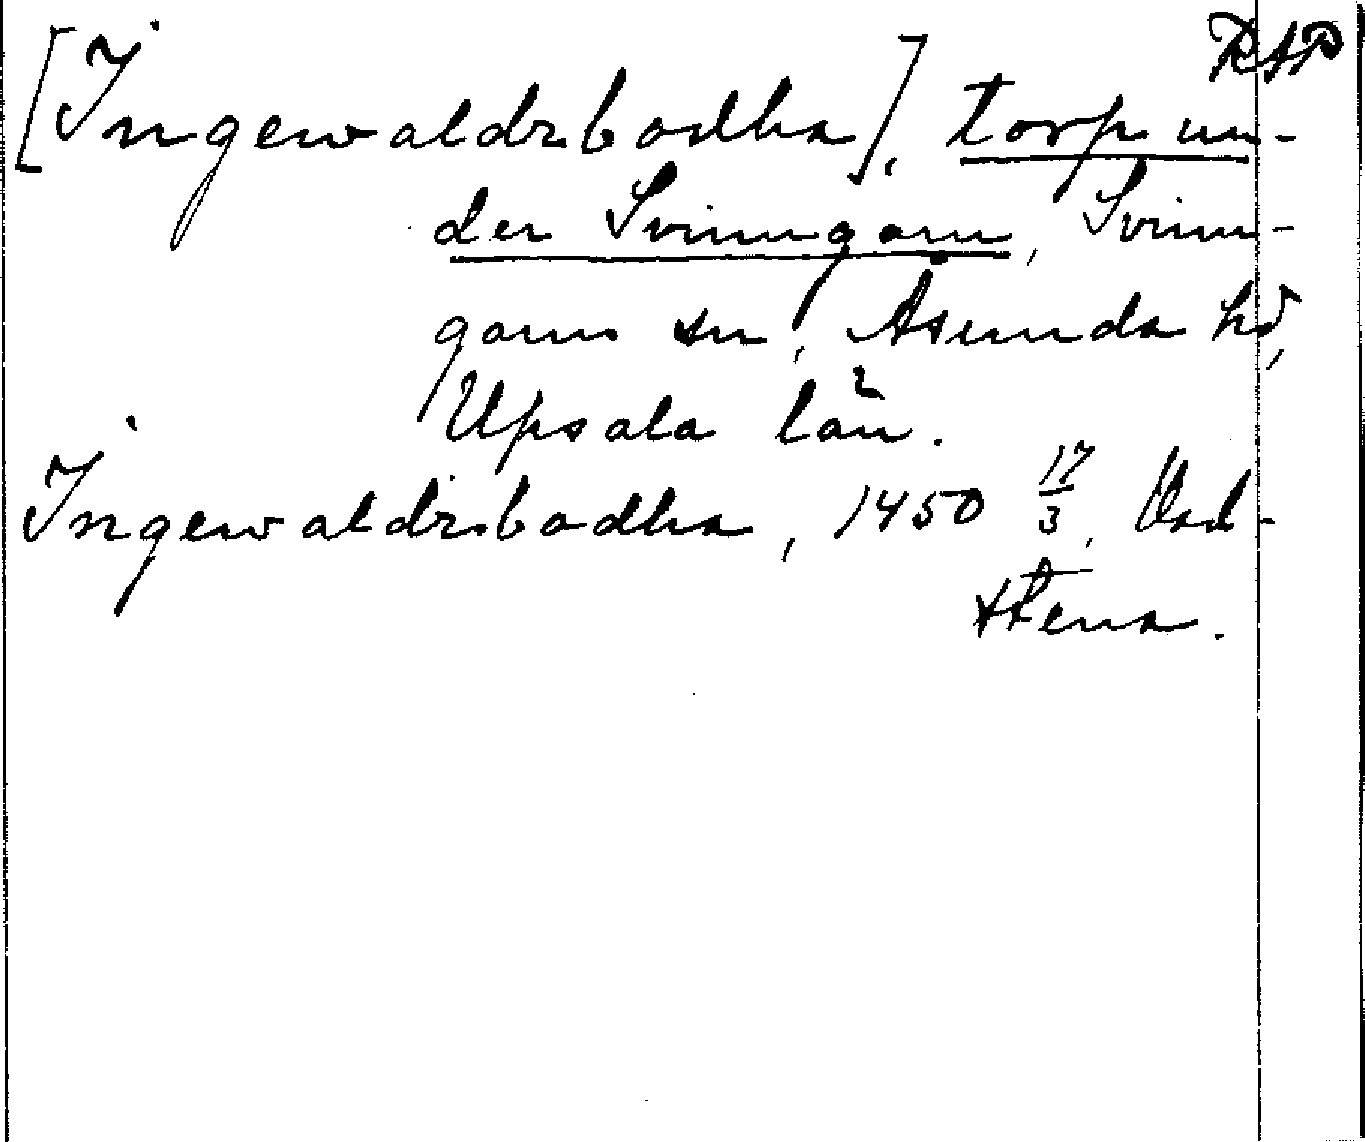 RAP
[Ingewaldzbodha], torp un-
der Svinngarn, Svinn-
garns sn, Åsunda hd,
Upsala län.
Ingewaldzbodha, 1450 17/3, Vad-
stena.